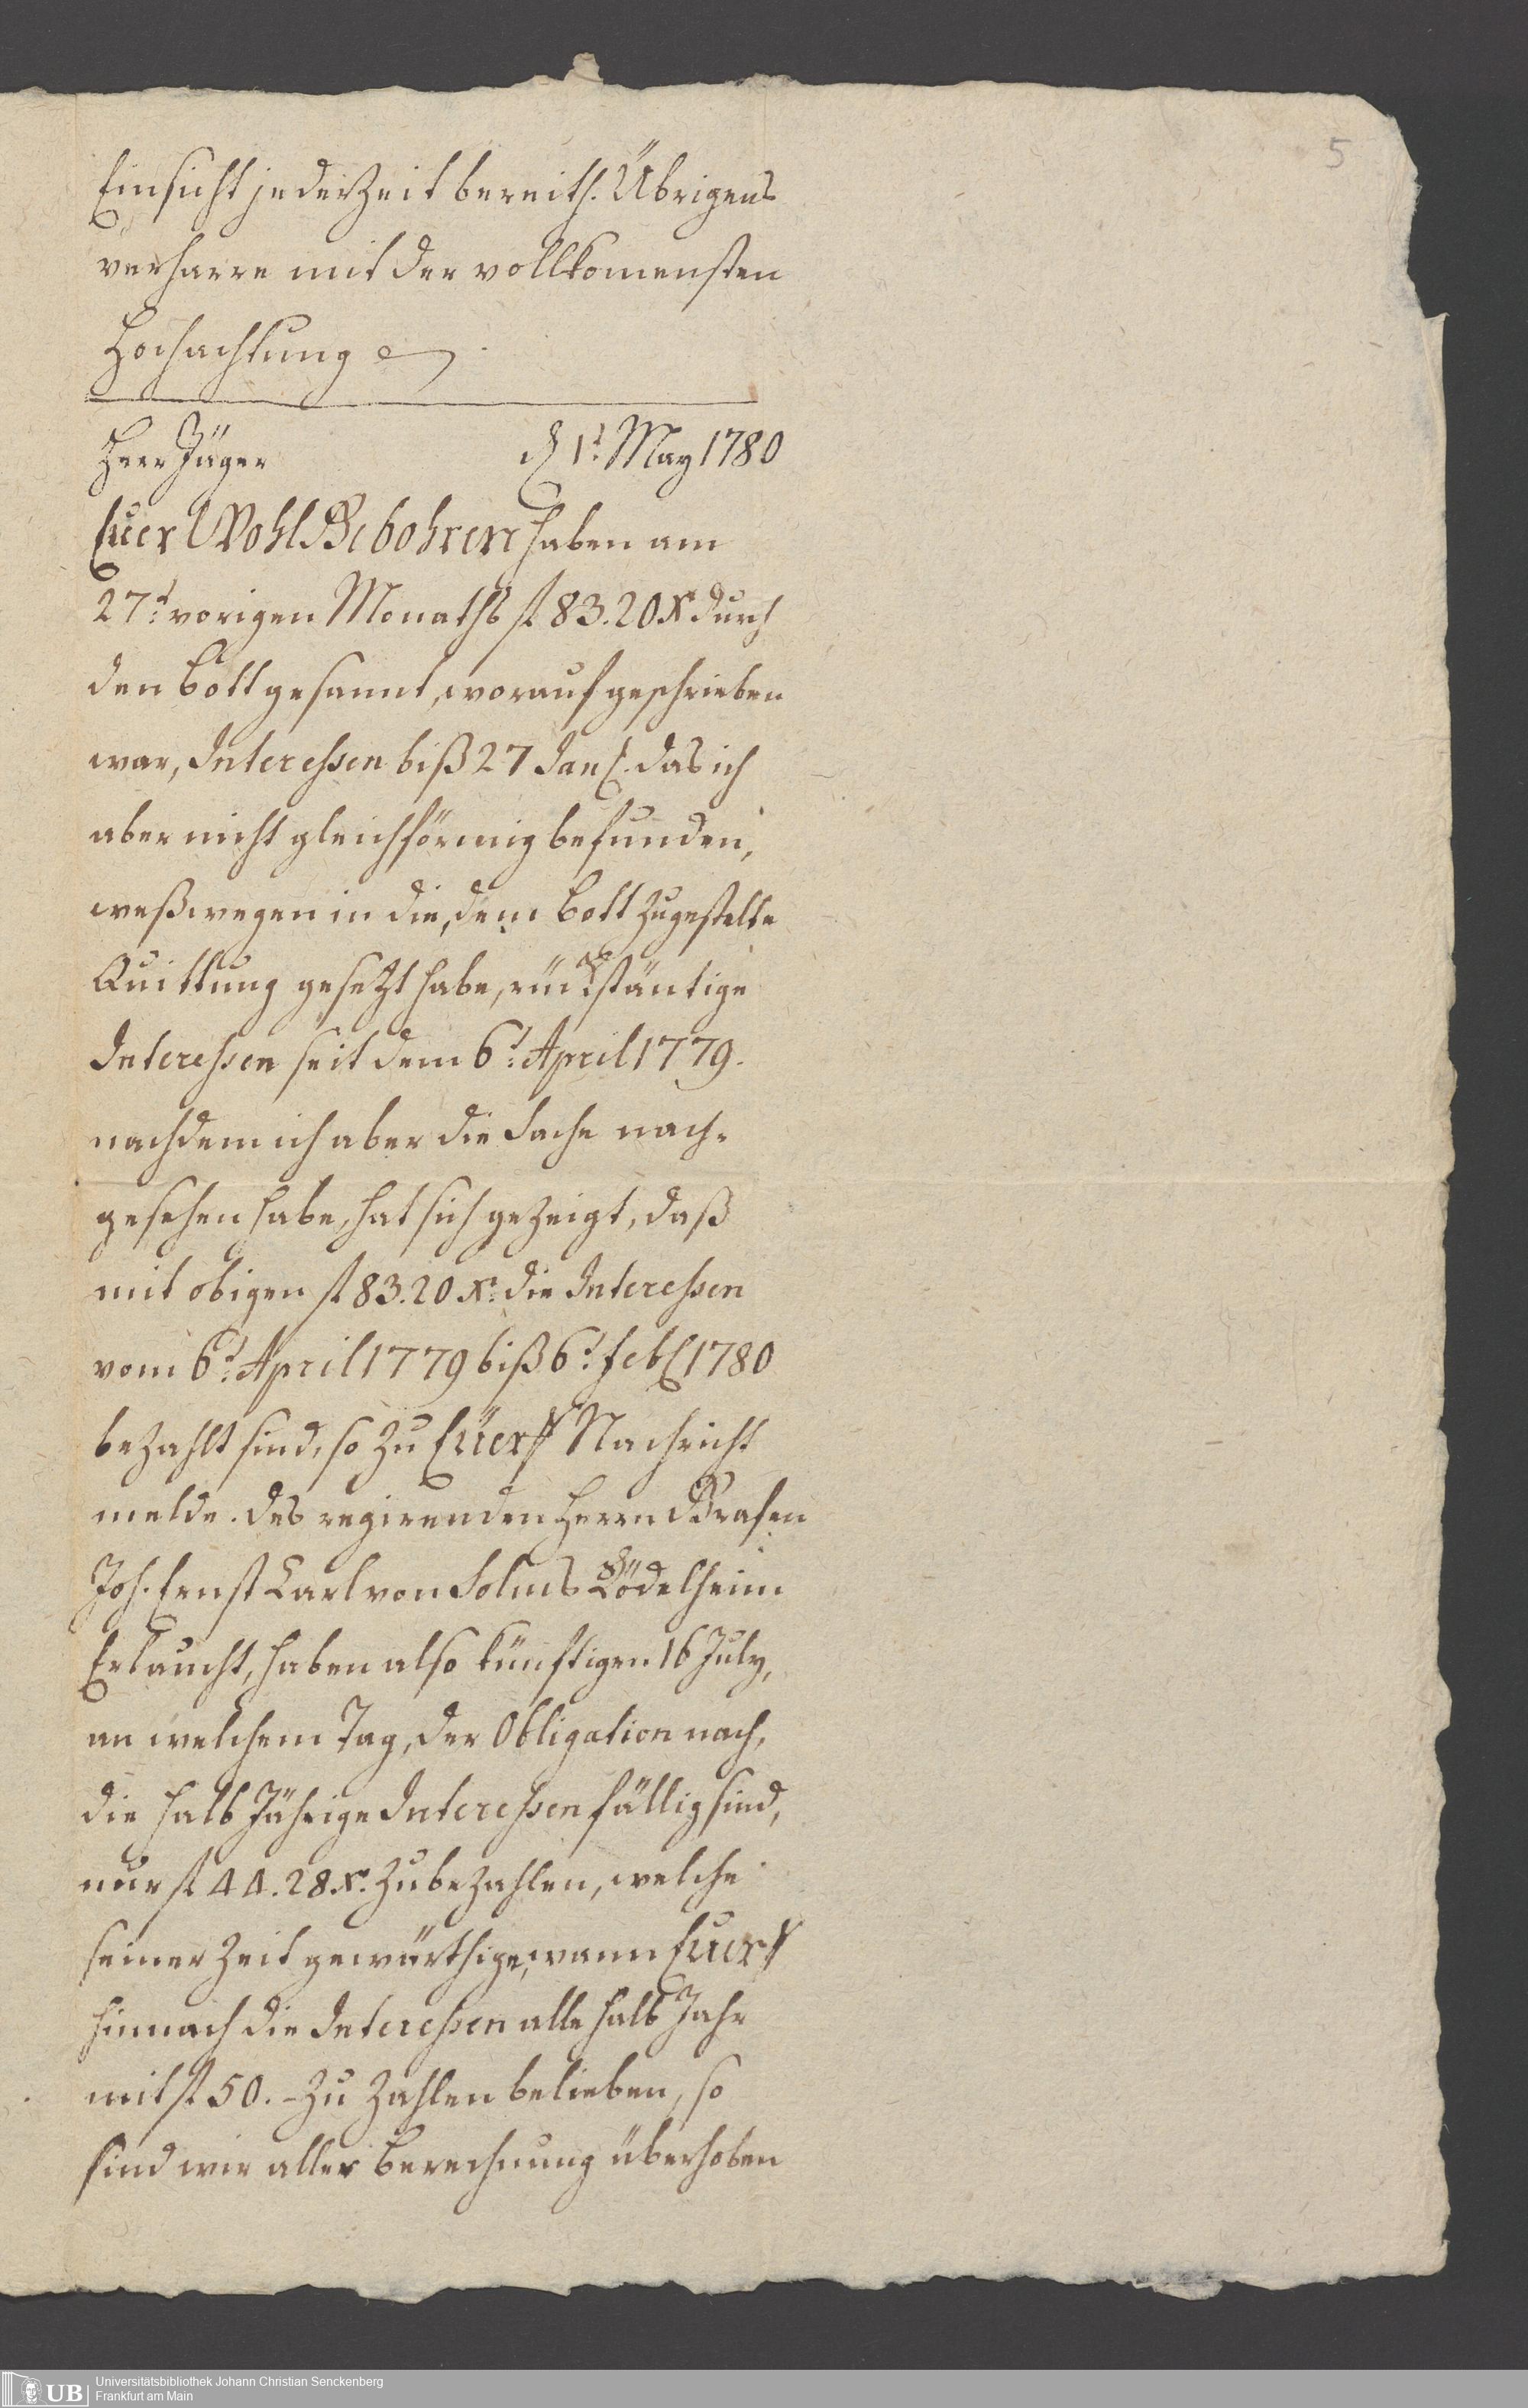 5
Einsicht jederzeit bereith. Übrigens
verharre mit der vollkomensten
Hochachtung
Herr Jäger d 1t. May 1780
Euer WohlGebohren haben am
27t. vorigen Monaths fl 83.20 Xr durch
den Bott gesannt, worauf geschrieben
war, Interessen biß 27 Jan. das ich
aber nicht gleichförmig befunden,
weßwegen in die, dem Bott zugestelte
Quittung gesetzt habe, rückständige
Interessen seit dem 6t. April 1779.
nachdem ich aber die Sache nach-
gesehen habe, hat sich gezeigt, daß
mit obigen fl 83.20 Xr. die Interessen
vom 6t. April 1779 biß 6t. Feb. 1780
bezahlt sind, so zu Euer Nachricht
melde. des regirenden Herrn Grafen
Joh. Ernst Carl von Solms Rödelheim
Erlaucht, haben also künftigen 16 July,
an welchem Tag, der Obligation nach,
die halb Jährige Interessen fällig sind,
nur fl 44.28 Xr. zu bezahlen, welche
seiner Zeit gewärthige, wann Euer
hinnach die Interessen alle halb Jahr
mit fl 50.- zu zahlen belieben, so
sind wir aller Berechnung überhoben
UB Universitätsbibliothek Johann Christian Senckenberg
Frankfurt am Main